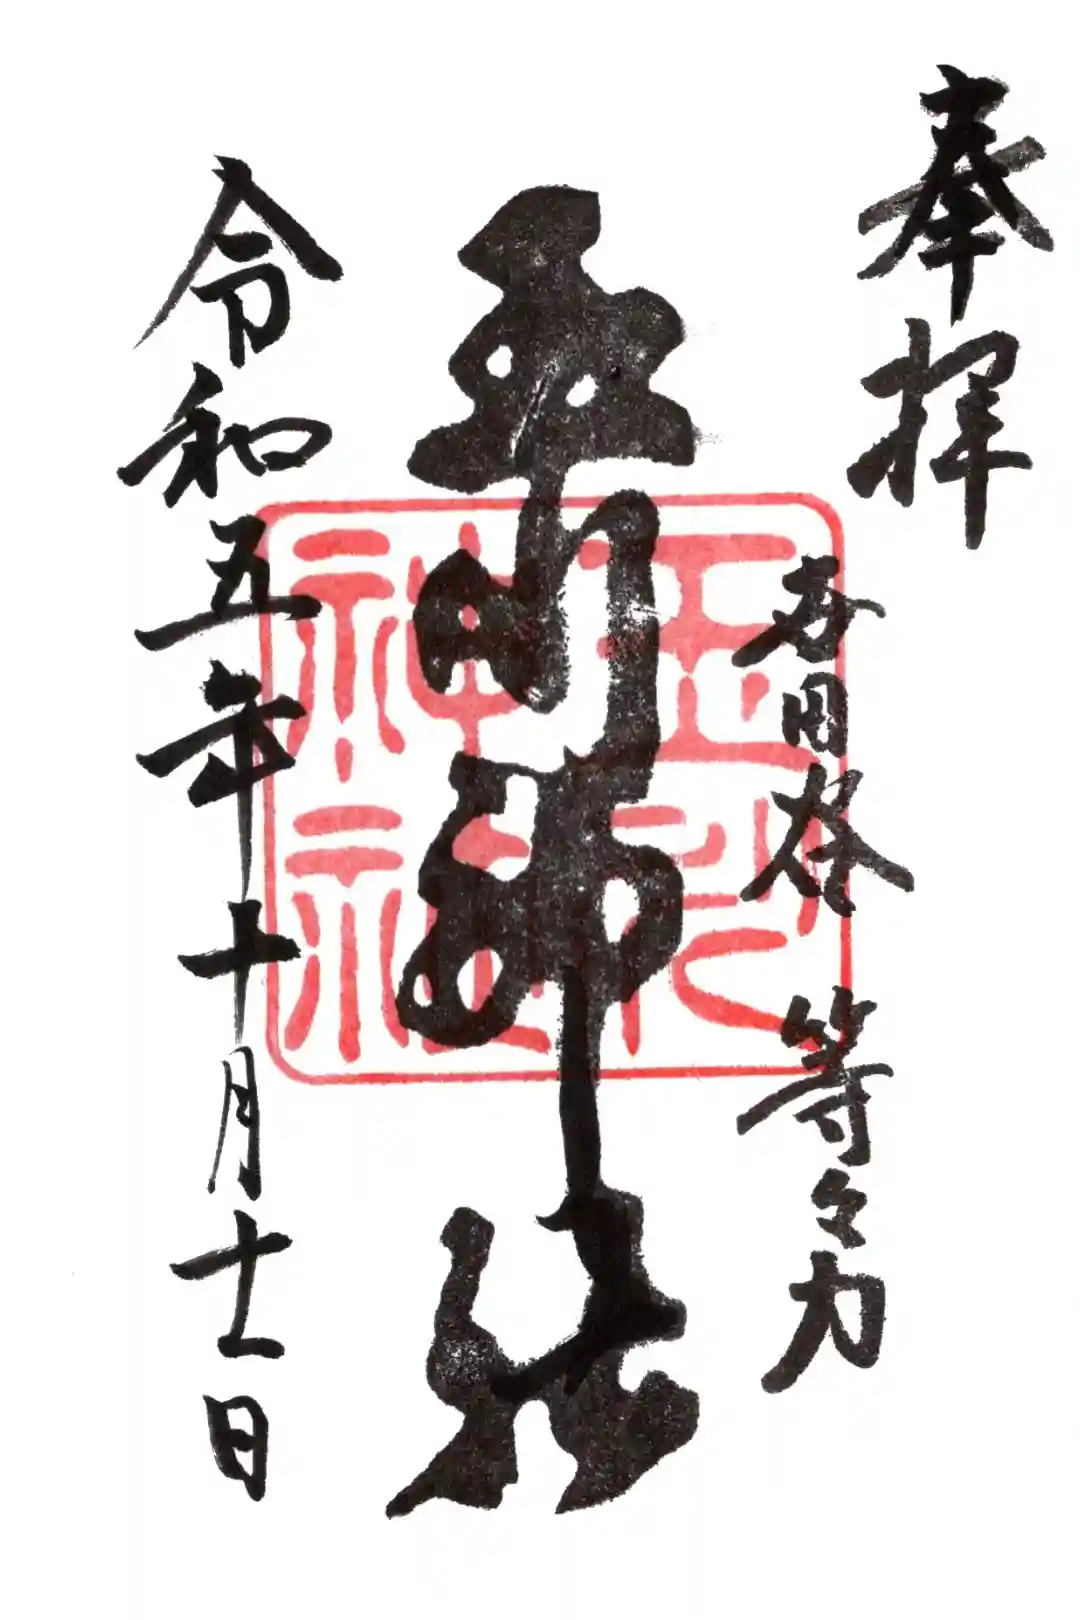 奉拝
世田谷 等々力
玉川神社
令和五年十月十一日
神社